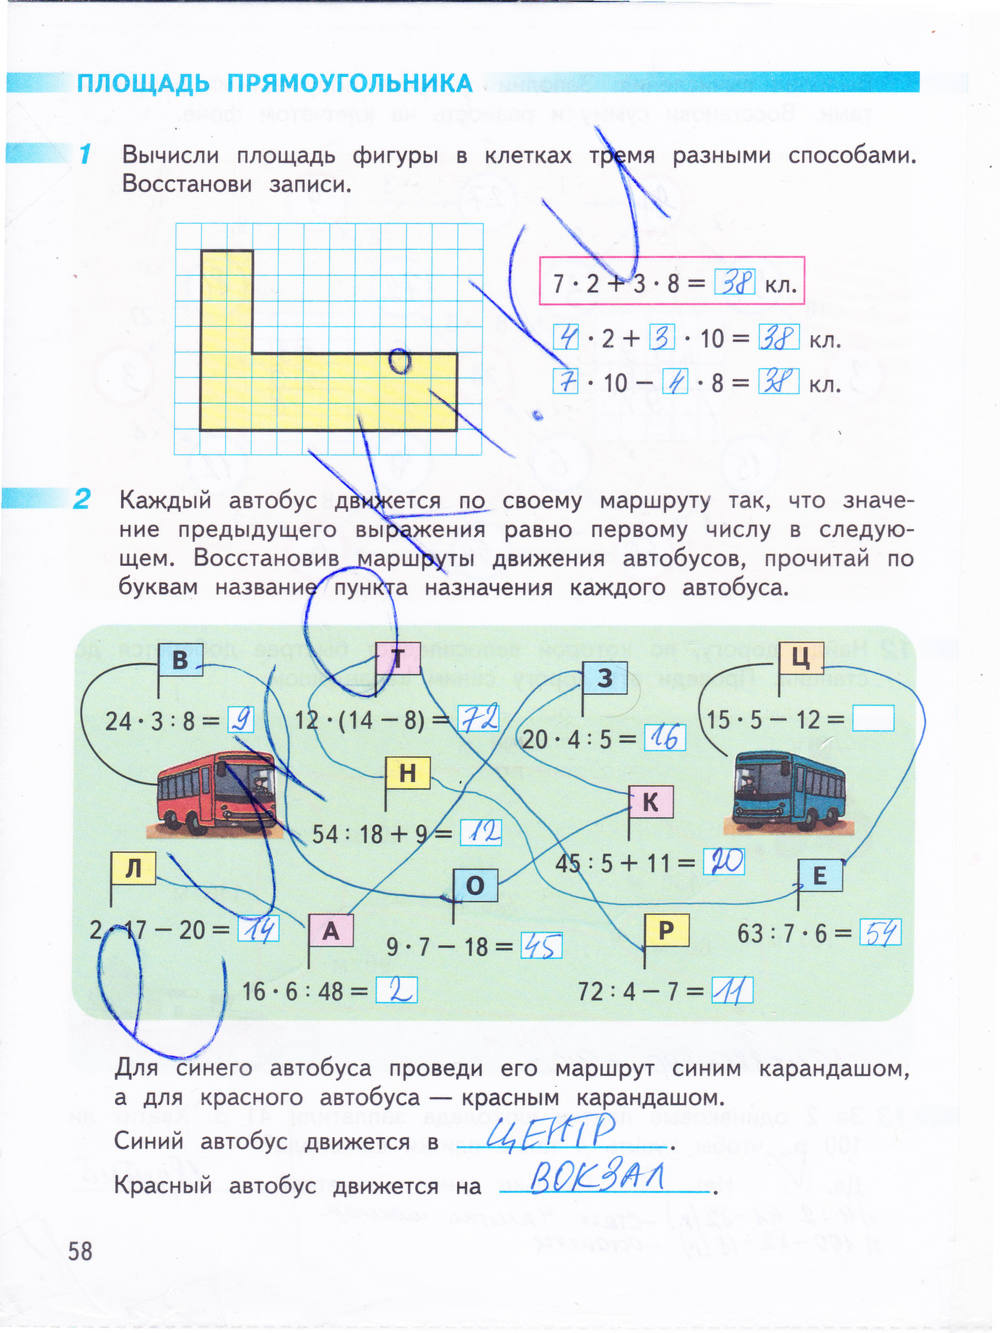 ПЛОЩАДЬ ПРЯМОУГОЛЬНИКА
1 Вычисли площадь фигуры в клетках тремя разными способами.
Восстанови записи.
7 · 2 + 3 · 8 = 38 кл.
4 · 2 + 3 · 10 = 38 кл.
7 · 10 − 4 · 8 = 38 кл.
2 Каждый автобус движется по своему маршруту так, что значе-
ние предыдущего выражения равно первому числу в следую-
щем. Восстановив маршруты движения автобусов, прочитай по
буквам название пункта назначения каждого автобуса.
В Т З Ц
24 · 3 : 8 = 9
12 · (14 − 8) = 72
20 · 4 : 5 = 16
15 · 5 − 12 =
Н К
54 : 18 + 9 = 12
45 : 5 + 11 = 20
Л О Е
2 · 17 − 20 = 14
А Р
9 · 7 − 18 = 45
63 : 7 · 6 = 54
16 · 6 : 48 = 2
72 : 4 − 7 = 11
Для синего автобуса проведи его маршрут синим карандашом,
а для красного автобуса — красным карандашом.
Синий автобус движется в ЦЕНТР.
Красный автобус движется на ВОКЗАЛ.
58